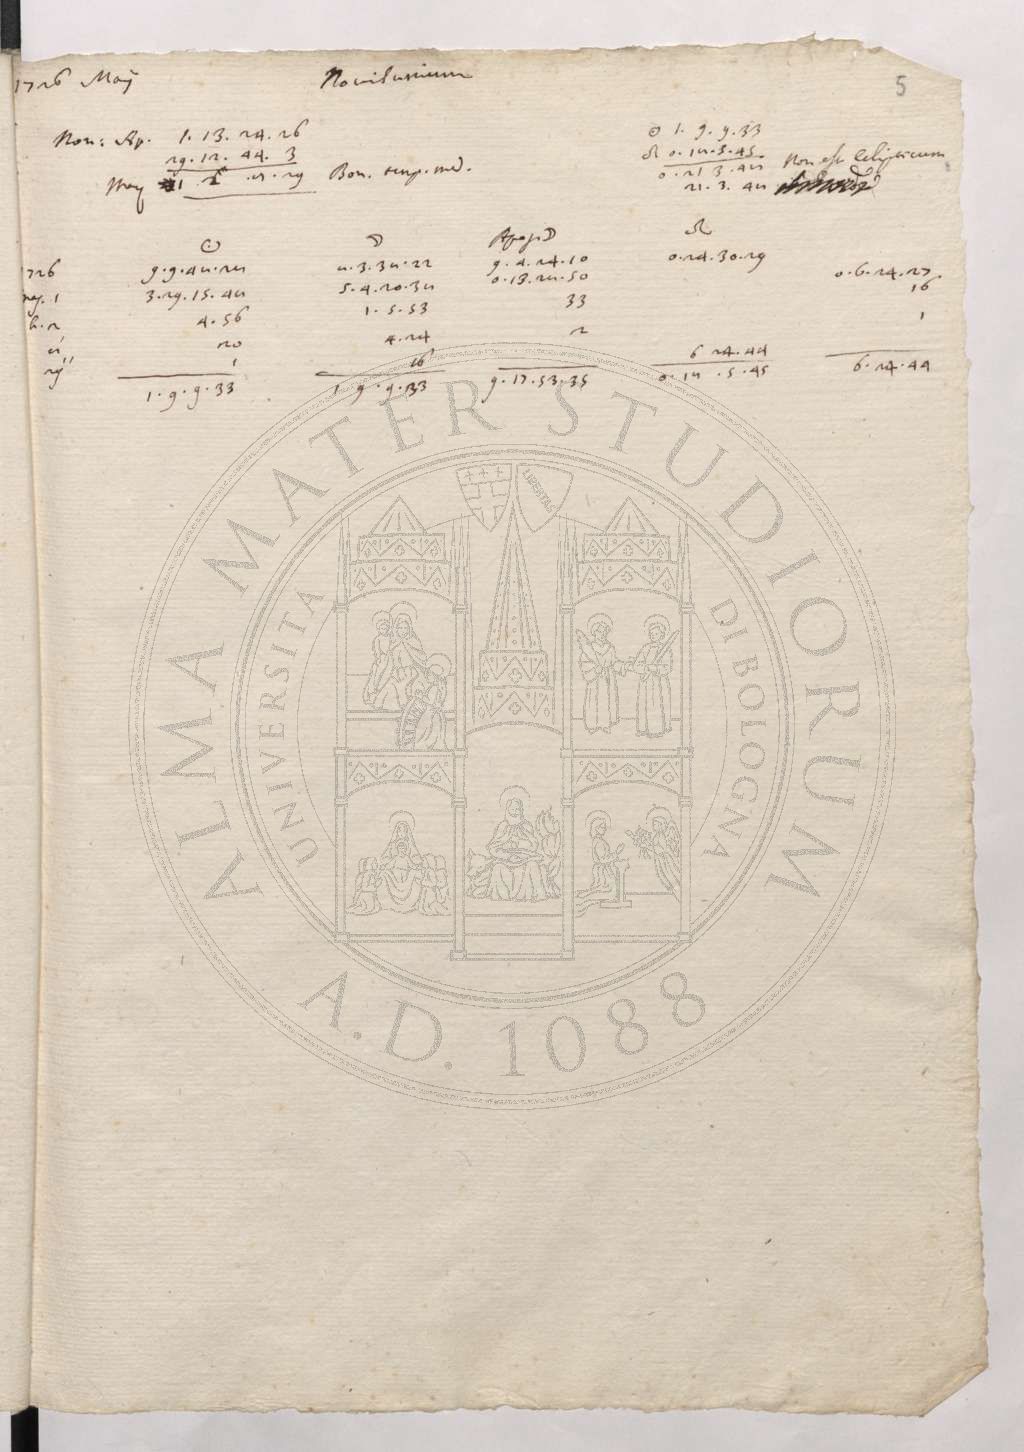 1726 Maij Novilunium 5
Nov: Ap. 1. 13. 24. 26 ☉ 1. 9. 9. 33
29. 12. 44. 3 ☊ 0. 18. 5. 45
Maij 1. 2. 8. 29 Bon. temp. med. 0. 21 3. 48 Non est Eclipticum
21. 3. 48
☉ ☽ Apog ☽ ☊
1726 9. 9. 48. 28 8. 3. 38. 22 9. 4. 24. 10 0. 24. 30. 29 0. 6. 24. 27
1 3. 29. 15. 48 5. 4. 20. 38 0. 13. 28. 50 16
h. 2 4. 56 1. 5. 53 33 1
8' 20 4. 24 2
29'' 1 16 6 24. 44
1. 9. 9. 33 1. 9. 9. 33 9. 17. 53. 35 0. 18. 5. 45 6. 24. 44
ALMA MATER STUDIORUM
UNIVERSITÀ DI BOLOGNA
LIBERTAS
A.D. 1088